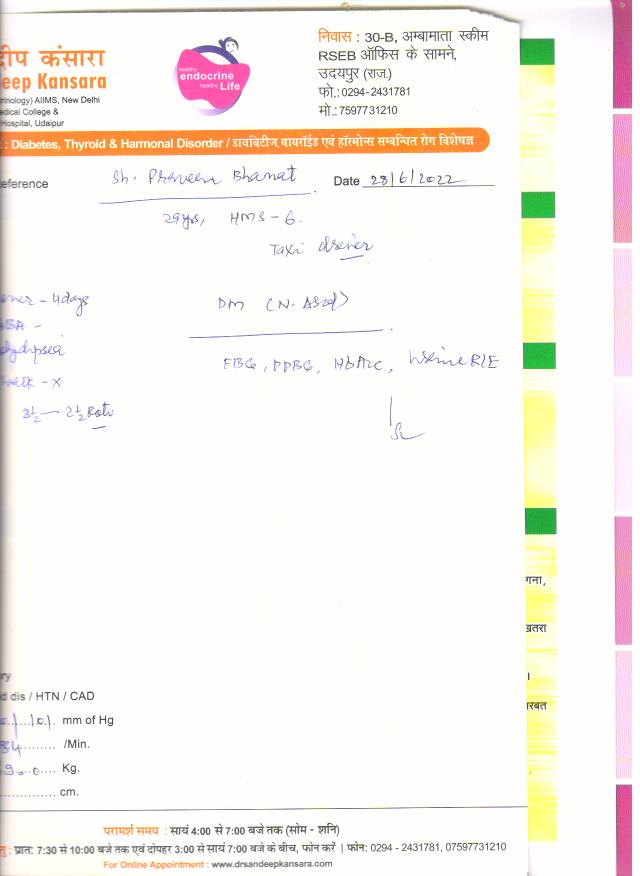 दीप कंसारा
deep Kansara
rinology) AIIMS, New Delhi
edical College &
Hospital, Udaipur
healthy
endocrine
healthy Life
निवास : 30-B, अम्बामाता स्कीम
RSEB ऑफिस के सामने,
उदयपुर (राज.)
फो.: 0294-2431781
मो.: 7597731210
: Diabetes, Thyroid & Harmonal Disorder / डायबिटीज, थायरॉईड एवं हॉरमोन्स सम्बन्धित रोग विशेषज्ञ
eference
Sh. Praveen Bhanat
Date 28/6/2022
29yrs, HMS-6.
Taxi driver
- 4 days
DM
BA -
FBG, PPBG, HbA1c, Urine R/E
walk - x
3½ - 2½ Roti
ry
d dis / HTN / CAD
mm of Hg
84 /Min.
Kg.
cm.
गना,
खतरा
।
रबत
परामर्श समय : सायं 4:00 से 7:00 बजे तक (सोम - शनि)
तु : प्रात: 7:30 से 10:00 बजे तक एवं दोपहर 3:00 से सायं 7:00 बजे के बीच, फोन करें | फोन: 0294 - 2431781, 07597731210
For Online Appointment : www.drsandeepkansara.com